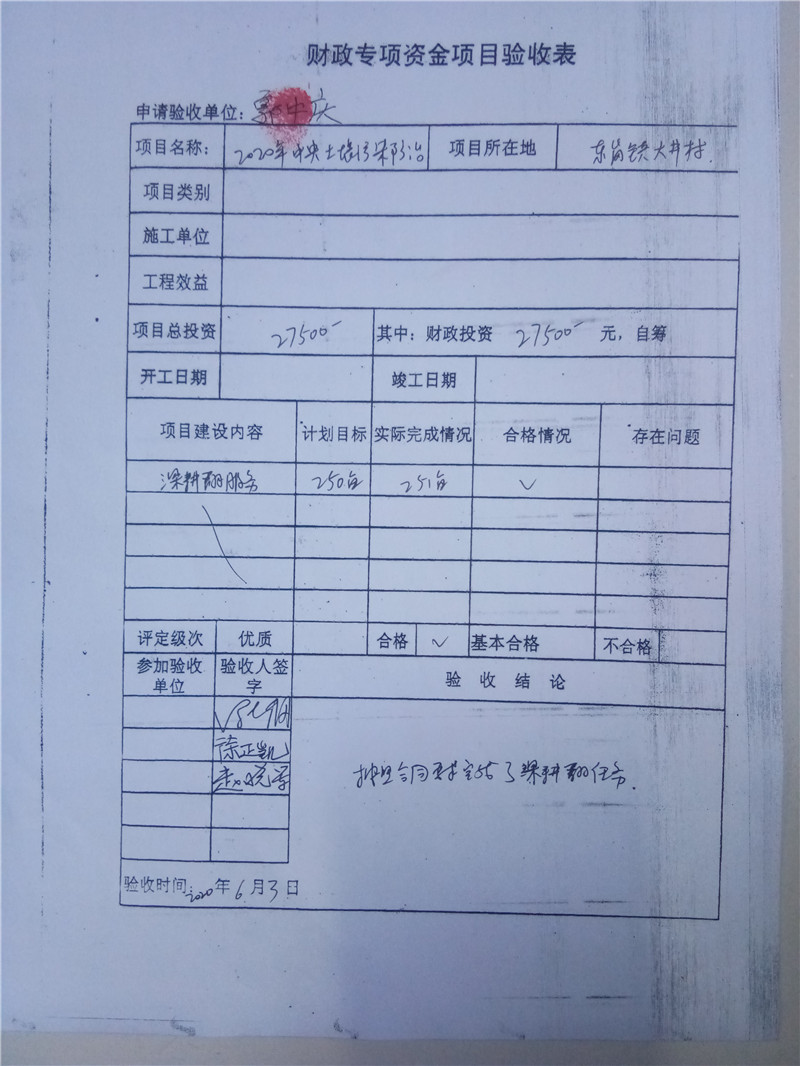 财政专项资金项目验收表
申请验收单位：
项目名称： 2020年中央土壤污染防治 项目所在地 东岗镇大井村
项目类别
施工单位
工程效益
项目总投资 27500 其中：财政投资 27500 元，自筹
开工日期 竣工日期
项目建设内容 计划目标 实际完成情况 合格情况 存在问题
深耕翻服务 250亩 251亩 ✓
评定级次 优质 合格 ✓ 基本合格 不合格
参加验收单位 验收人签字 验 收 结 论
徐正凯
赵晓
按照合同要求完成了深耕翻任务.
验收时间：2020年6月3日